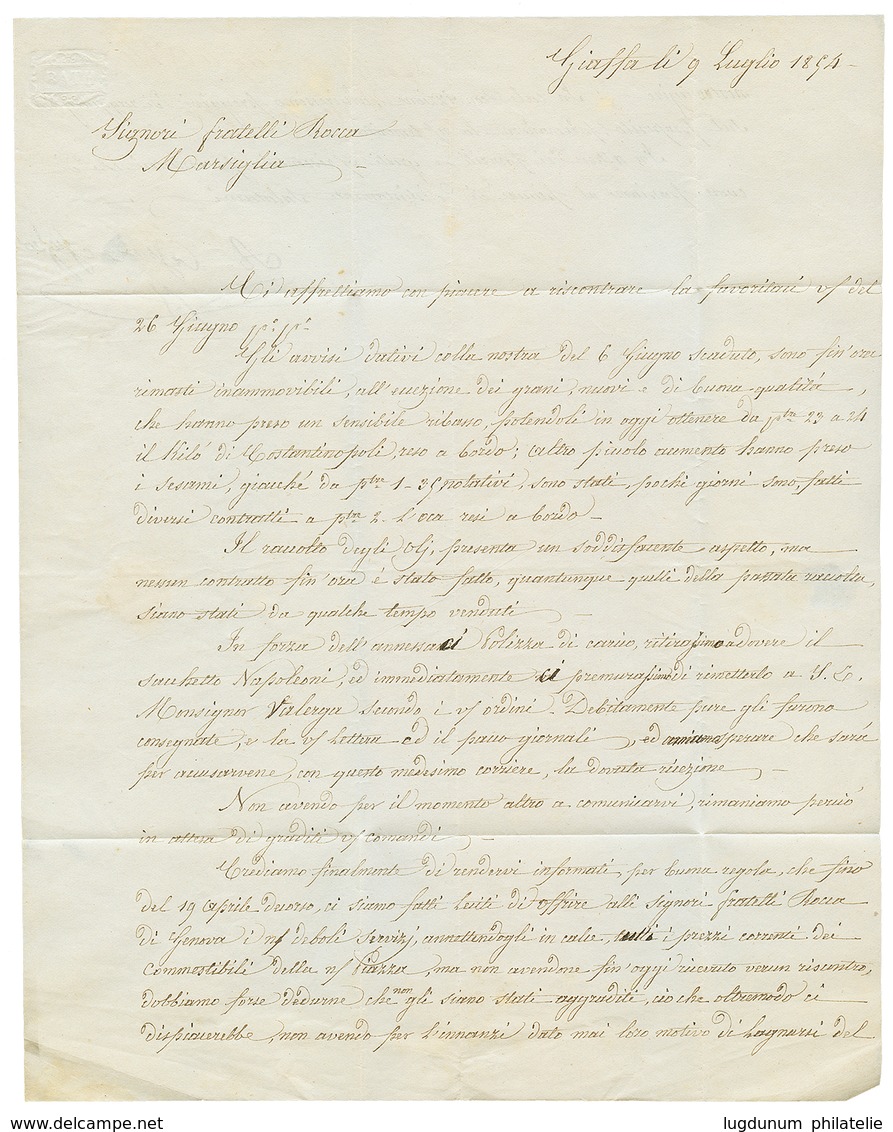 BATH
Giaffa li 9 Luglio 1854
Signori fratelli Rocca
Marsiglia
Mi affrettiamo con piacere a riscontrare la favoritaci v/ del
26 Giugno
Gli avvisi dativi colla nostra del 6 Giugno scaduto, sono fin'ora
rimasti inammovibili, all'eccezione dei grani, nuovi e di buona qualità,
che hanno preso un sensibile ribasso, potendoli in oggi ottenere da ptre 23 a 24
il Kilò di Costantinopoli, reso a bordo; altro piccolo aumento hanno preso
i sesami, giacché da ptre 1-35 notativi, sono stati, pochi giorni sono, fatti
diversi contratti a ptre 2. l'oca resi a bordo
Il raccolto degli Olj, presenta un soddisfacente aspetto, ma
nessun contratto fin'ora è stato fatto, quantunque quelli della passata raccolta,
siano stati da qualche tempo venduti
In forza dell'annessaci Polizza di carico, ritirassimo a dovere il
sacchetto Napoleoni, ed immediatamente ci premurassimo di rimetterlo a S. E.
Monsignor Valerga secondo i v/ ordini. Debitamente pure gli furono
consegnate, e la v/ lettera ed il pacco giornali, ed amiamo sperare che sarà
per accusarvene, con questo medesimo corriere, la dovuta ricezione
Non avendo per il momento altro a comunicarvi, rimaniamo perciò
in attesa di graditi v/ comandi
Crediamo finalmente di rendervi informati, per buona regola, che fino
del 19 Aprile decorso, ci siamo fatti lesiti di offrire alli signori fratelli Rocca
di Genova i n/ deboli servizj, annettendogli in calce tutti i prezzi correnti dei
Commostibili della n/ Piazza, ma non avendone fin'oggi ricevuto verun riscontro,
dobbiamo forse dedurne che non gli siano stati aggraditi, ciò che oltremodo ci
dispiacerebbe, non avendo per l'innanzi dato mai loro motivo di lagnarsi del
www.delcampe.net
lugdunum philatelie